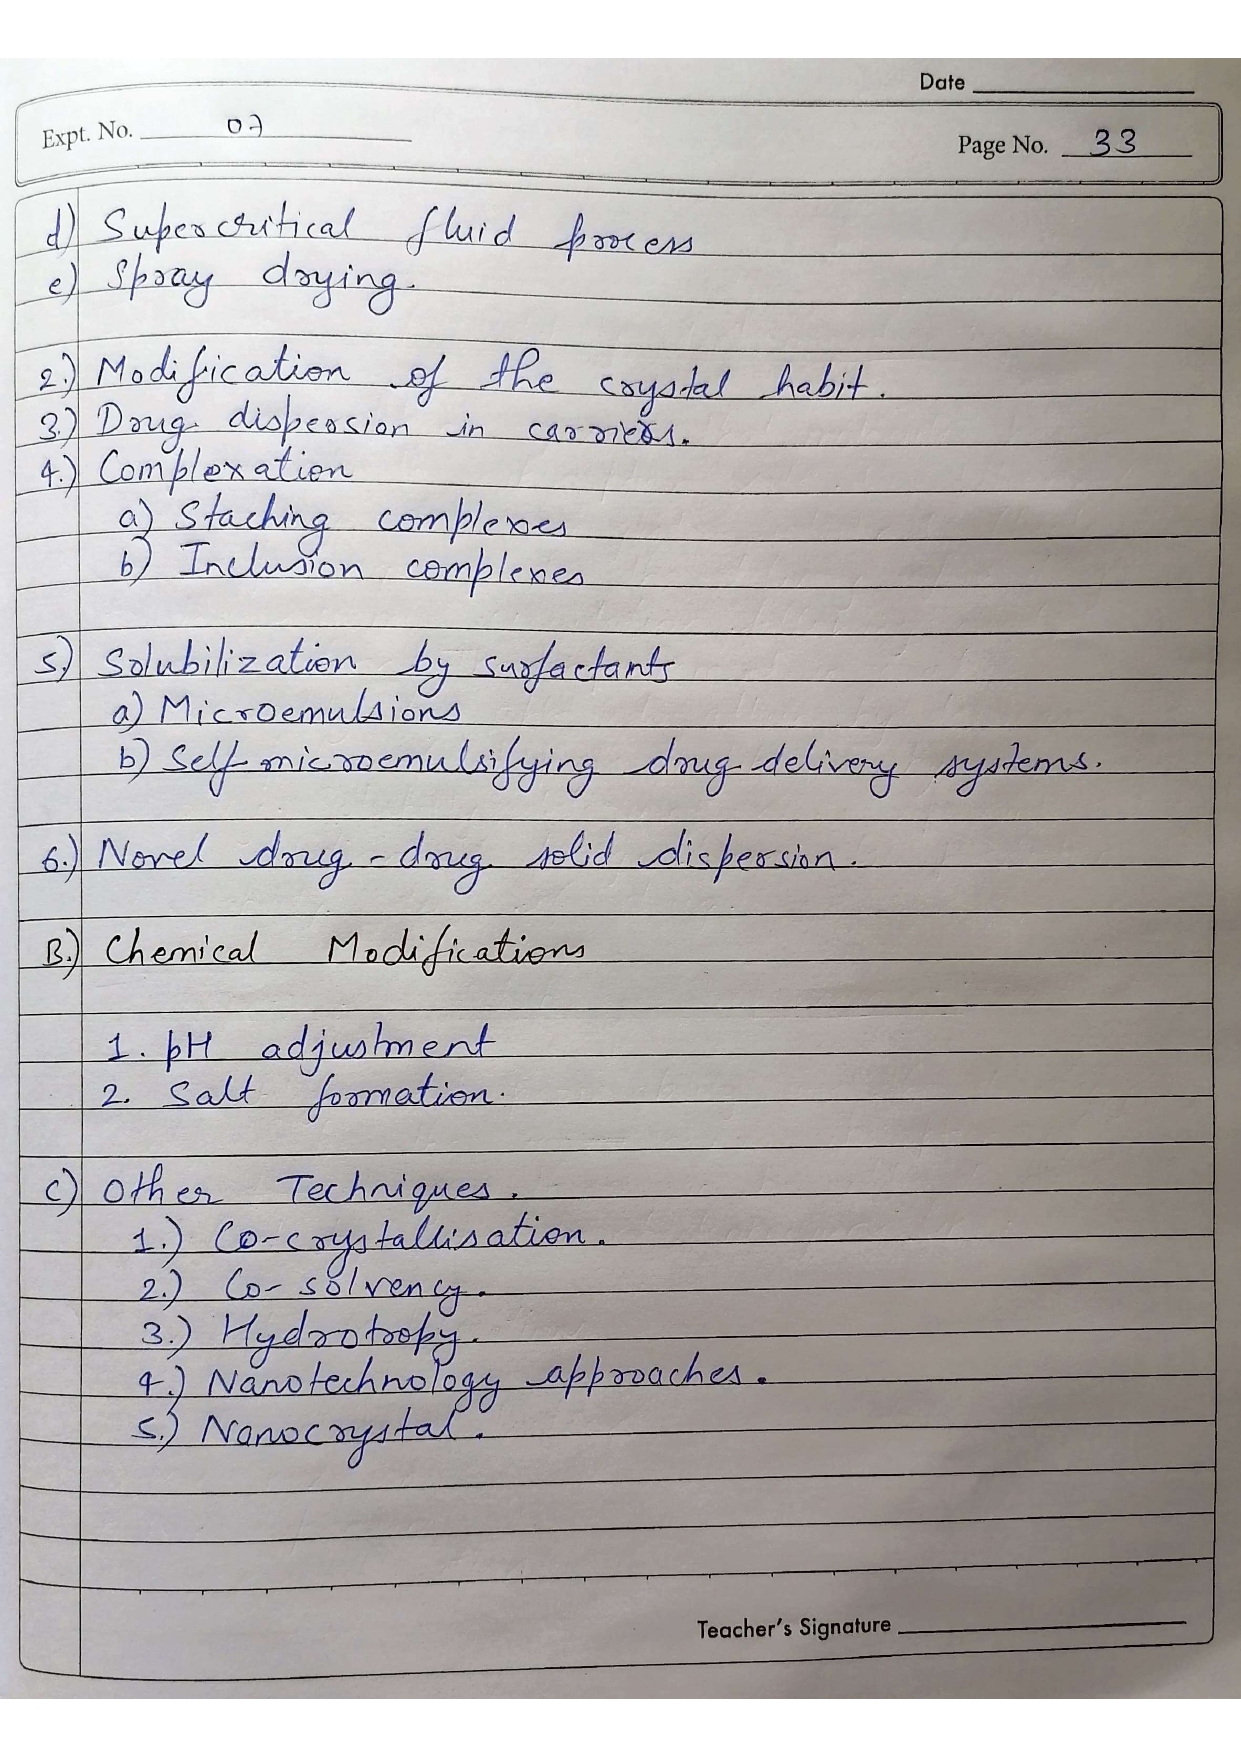 Date
Expt. No. 07
Page No. 33
d) Supercritical fluid process
e) Spray drying.
2.) Modification of the crystal habit.
3.) Drug dispersion in carriers.
4.) Complexation
a) Staching complexes
b) Inclusion complexes
5.) Solubilization by surfactants
a) Microemulsions
b) Self-microemulsifying drug delivery systems.
6.) Novel drug-drug solid dispersion.
B.) Chemical Modifications
1. pH adjustment
2. Salt formation.
C) Other Techniques.
1.) Co-crystallisation.
2.) Co-solvency.
3.) Hydrotropy.
4.) Nanotechnology approaches.
5.) Nanocrystal.
Teacher's Signature